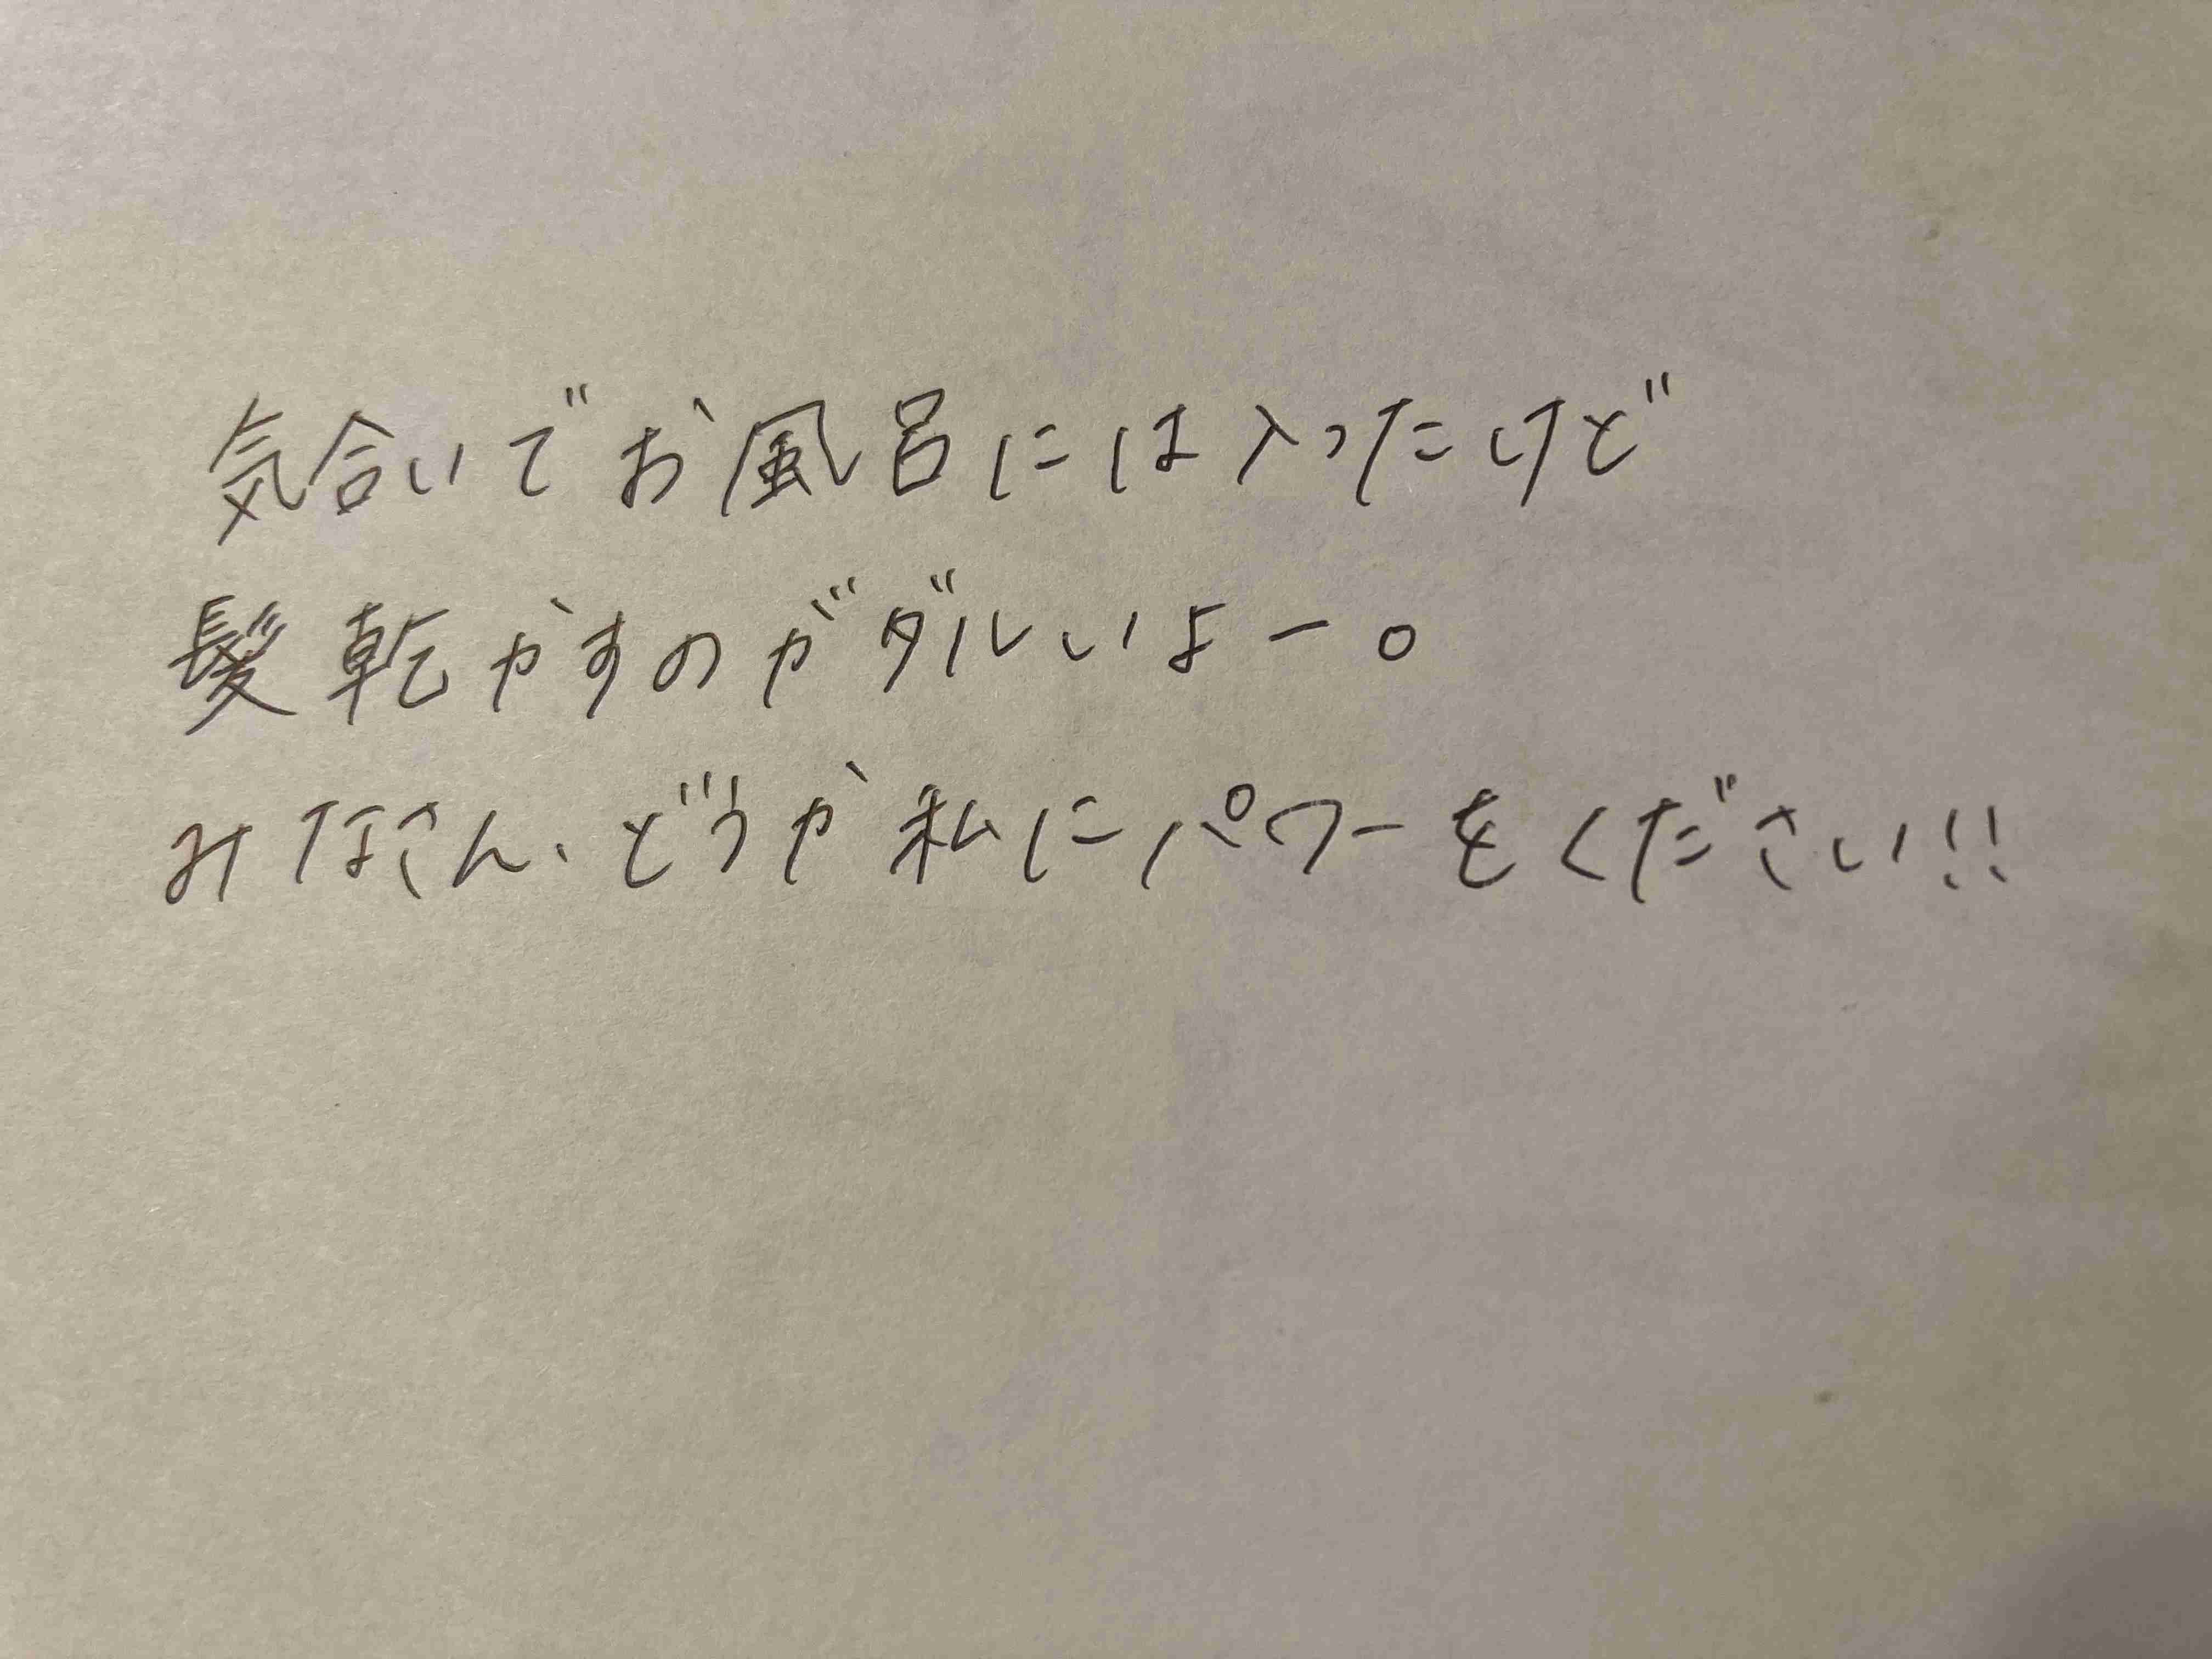 気合いでお風呂には入ったけど
髪乾かすのがダルいよー。
みなさん、どうか私にパワーをください!!